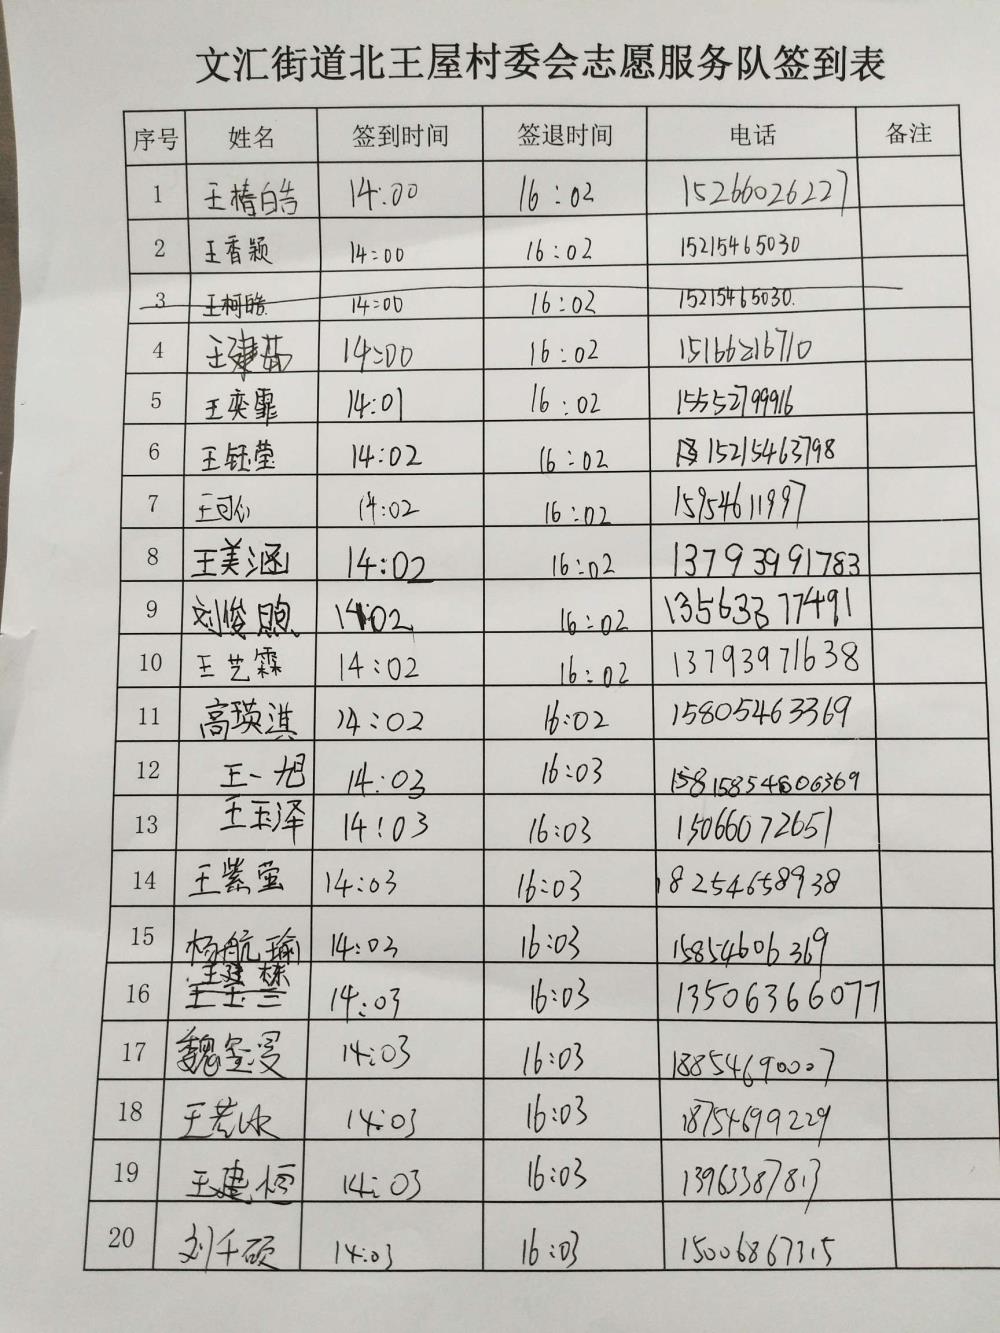 文汇街道北王屋村委会志愿服务队签到表
序号 姓名 签到时间 签退时间 电话 备注
1 王椿皓 14:00 16:02 15266026227
2 王香颖 14:00 16:02 15215465030
3 王柯晗 14:00 16:02 15215465030.
4 王建茹 14:00 16:02 15166216710
5 王奕霏 14:01 16:02 15552799916
6 王钰莹 14:02 16:02 15215463798
7 14:02 16:02 15954611997
8 王美涵 14:02 16:02 13793991783
9 刘俊煦 14:02 16:02 13563377491
10 王艺霖 14:02 16:02 13793971638
11 高瑛淇 14:02 16:02 15805463369
12 王一旭 14:03 16:03
13 王玉泽 14:03 16:03 15066072651
14 王紫萤 14:03 16:03 18254658938
15 杨航瑜 14:03 16:03 15854606369
16 14:03 16:03 13506366077
17 14:03 16:03 18854690007
18 14:03 16:03 18754699229
19 王建恒 14:03 16:03 13963387813
20 刘千硕 14:03 16:03 15006867315